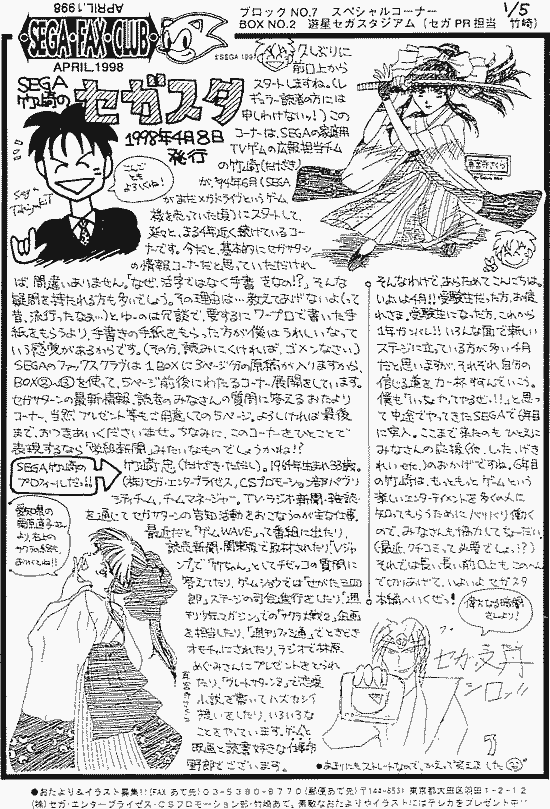 APRIL.1998
SEGA・FAX・CLUB
APRIL.1998
©SEGA
ブロックNO.7 スペシャルコーナー
BOX NO.2 遊星セガスタジアム（セガPR担当 竹崎）
1/5
SEGA
竹崎の
セガスタ
1998年4月8日
発行
久しぶりに
前口上から
スタートしますね。(レ
ギュラー読者の方には
申しわけないっ！)この
コーナーは、SEGAの家庭用
TVゲームの広報担当チーム
の竹崎(たけざき)
が、'94年6月(SEGA
がまだメガドライブというゲーム
機を売っていた頃)にスタートして、
延々と、まる4年近く続けているコー
ナーです。今だと、基本的にセガサターン
の情報コーナーだと思っていただけれ
ば、間違いありません。「なぜ、活字ではなく手書きなの!?」そんな
疑問を持たれる方も多いでしょう。その理由は…教えてあげないよ(って
昔、流行ったなぁ…)とゆーのは冗談で、要するにワープロで書いた手
紙をもらうより、手書きの手紙をもらった方が僕はうれしいなって
いう感覚があるからです。(その分、読みにくければ、ゴメンなさい)
SEGAのファックスクラブは1BOXに3ページ分の原稿が入りますから、
BOX②と③を使って、5ページ前後にわたるコーナー展開をしています。
セガサターンの最新情報、読者のみなさんの質問に答えるおたより
コーナー、当然、プレゼント等もご用意しての5ページ。よろしければ最後
まで、おつきあいくださいませ。ちなみに、このコーナーをひとことで
表現するなら「学級新聞」みたいなものでしょうかね!?
こんご
ともよろしくね!
SEGA竹崎の
プロフィールだい!!
竹崎 忠(たけざき・ただし)。1964年生まれ33歳。
(株)セガ・エンタープライゼス、CSプロモーション部パブリ
シティチーム、チームマネージャー。TV・ラジオ・新聞・雑誌
を通じてセガサターンの告知活動をおこなうのが主な仕事。
最近だと「ゲームWAVE」って番組に出たり、
読売新聞・関東版で取材されたり、「Vジャ
ンプ」で「竹ちゃん」としてチビッコの質問に
答えてたり、ゲームショウでは「せがた三四
郎」ステージの司会進行をしたり、「週
刊少年マガジン」での「サクラ大戦2」企画
を担当したり、「週刊ファミ通」でときどき
オモチャにされたり、ラジオで林原
めぐみさんにプレゼントをとられ
たり、「グレートサターンZ」で恋愛
小説を書いてハズカシイ
想いをしたり、いろいろな
ことをやっています。ゲームと
映画と読書好きな仕事中
野郎でございます。
そんなわけで、あらためてこんにちは。
いよいよ4月!!受験生だった方、お疲
れさま。受験生になった方、これから
1年ガンバレ!!いろんな面で新しい
ステージに立っている方が多い4月
だと思いますが、それぞれ、自分の
信じる道を力一杯すすんでいこう。
僕も「いっちょやってやるぜ…!!」と思っ
て中途でやってきたSEGAで6年目
に突入。ここまで来たのもひとえに
みなさんの応援
のおかげですね。6年目
の竹崎は、もっともっとゲームという
楽しいエンターテイメントを多くの人に
知ってもらうためにバリバリ働く
ので、みなさんも協力してちょーだい
(最近、クチコミって必要でしょ!?)
それでは長い長い前口上も、このへん
で切りあげて、いよいよセガスタ
本編へいくぜっ!
偉大なる時間
さんより!
セガ・文丹
シロッ!!
●あまりにもストレートなので、かえって笑えました
●おたより&イラスト募集!!(FAXあて先)03-5380-8770(郵便あて先)〒144-8531 東京都大田区羽田1-2-12
(株)セガ・エンタープライゼス・CSプロモーション部・竹崎あて。素敵なおたよりやイラストにはテレカをプレゼント…!